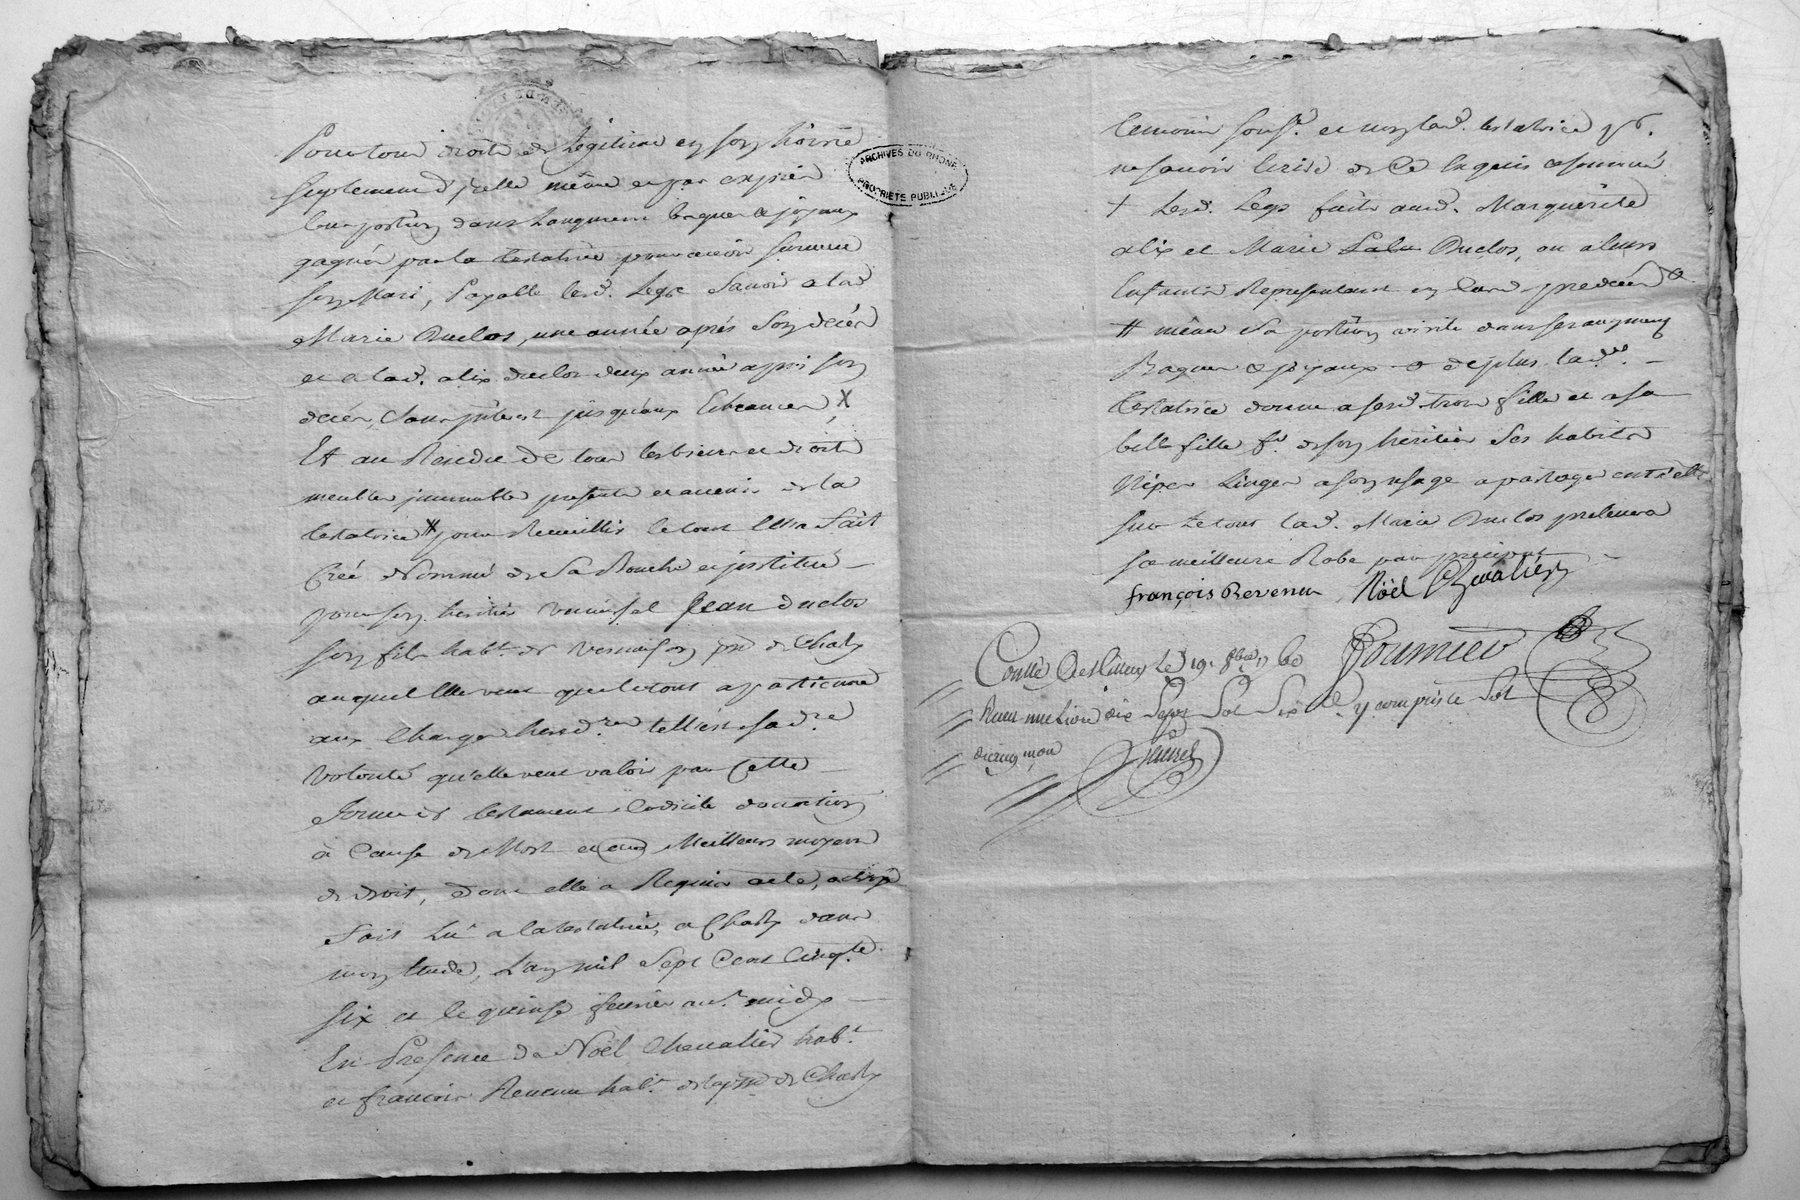 Pour tous droits de Legitime en son hoirie
suplement d'jcelle même et par exprès
leur portion dans Laugment bagues et joyaux
gagnés par la testatrice pour avoir survecu
son Mari, payable lesd. Legs Savoir a lad
Marie Duclos, une année après son decès
et a lad. alix duclos deux années après son
decès, sans jnterest jusqu'aux Echeances, X
Et au Residu de tous les biens et droits
meubles jmmeubles presents et avenir de la
testatrice # pour Recueillir le tout Elle a fait
Créé Nommé de Sa Bouche et jnstitué
pour son heritier universel Jean duclos
son fils habt. de Vernaison psse de Charly
auquel Elle veut que le tout appartienne
aux Charges heredres telle est sa dre
Volonté qu'elle veut valoir par Cette
forme de testament Codicile donation
à Cause de Mort et en Meilleurs moyens
de droit, dont elle a Requis acte,
fait Lu a la testatrice, a Charly dans
mon Etude, L'an mil Sept Cent Cinqte
six et le quinse fevrier avt. midy
En Presence de Noël Chevalier habt
et francois Revenu habt. de lad psse de Charly
temoins soussr. et non lad. testatrice p
ne savoir Ecrire de Ce Enquise et sommée
+ Lesd. Legs faits auxd. Marguerite
alix et Marie Duclos, ou a leurs
Enfants Representant en Cas de predecès
# même Sa portion virile dans ses augment
Bagues et joyaux et de plus lad
testatrice donne a sesd. trois filles et a sa
belle fille fe. de son heritier Ses habits
Nipes Linges a son usage a partager entr'elles
sur Le tout lad. Marie Duclos prelevera
sa meilleure Robe par preciput
françois Revenu Noël Chevalier
Fournier
Conllé Le 19. 1760
Reçu dix Sept Sols Six d. y compris le Sol